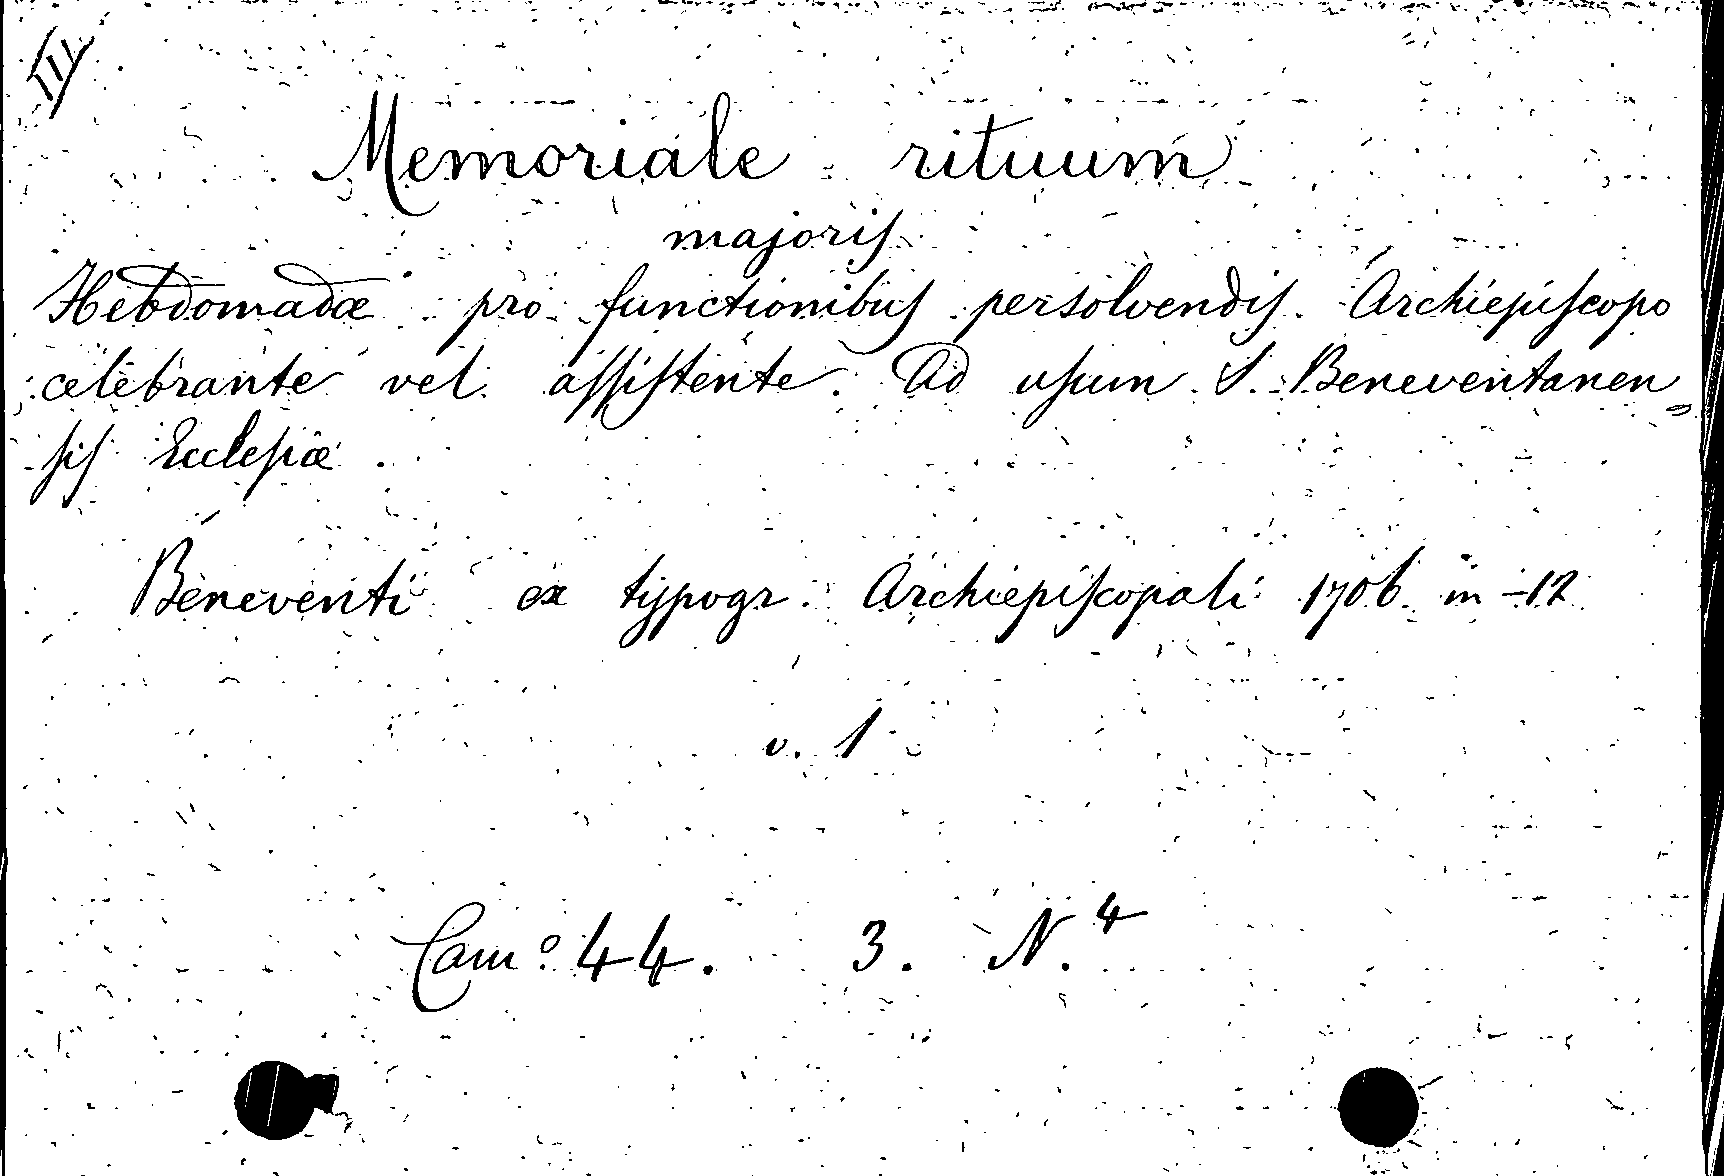 III
Memoriale rituum
majoris
Hebdomadæ pro functionibus persolvendis Archiepiscopo
celebrante vel assistente. Ad usum S. Beneventanen=
sis Ecclesiæ.
Beneventi ex typogr. Archiepiscopali 1706 in -12
v. 1
Cam.º 44. 3. N.4